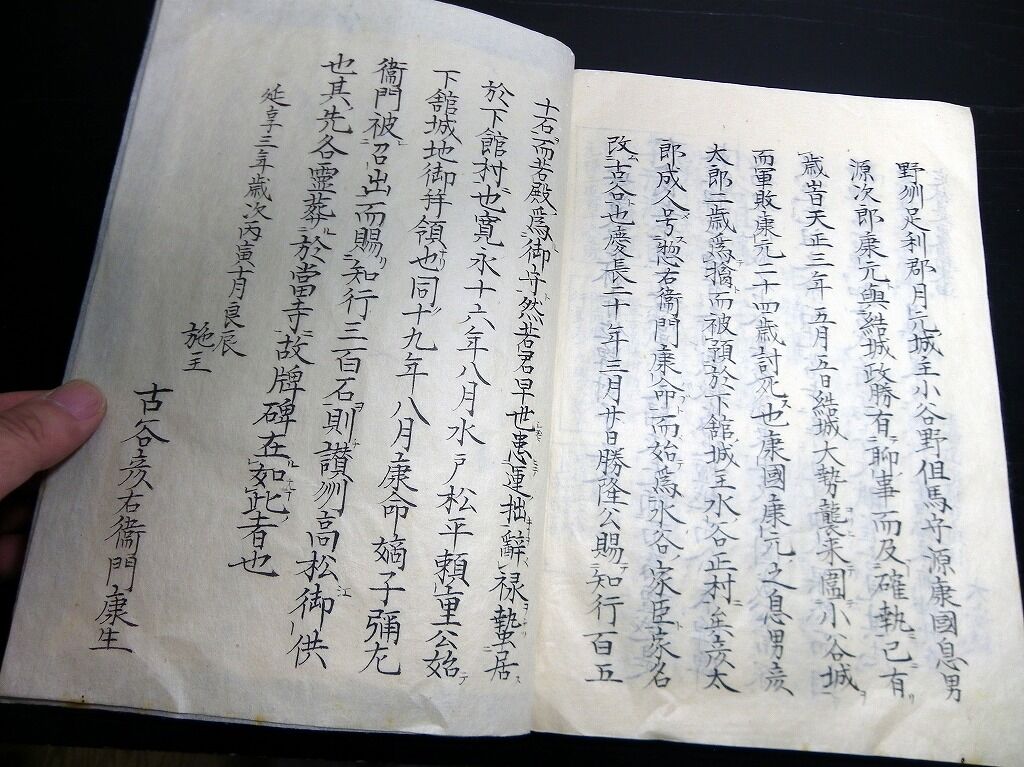 野刕足利郡月元城主小谷野但馬守源康國息男
源次郎康元與結城政勝有聊事而及確執已有
歳昔天正三年五月五日結城大勢襲来囲小谷城
而軍敗康元二十四歳討死也康國康元之息男彦
太郎二歳爲擒而被預於下舘城主水谷正村矣彦太
郎成人号惣右衞門康命而始爲水谷家臣家名
改古谷也慶長二十年三月廿日勝隆公賜知行百五
十石而若殿爲御守然若君早世患運拙辭禄蟄居
於下館村也寛永十六年八月水戸松平頼重公始
下舘城地御拜領也同十九年八月康命嫡子彌左
衞門被召出而賜知行三百石則讃刕高松御供
也其先各霊葬於當寺故牌碑在如此者也
延享三年歳次丙寅十月良辰
施主
古谷彦右衞門康生